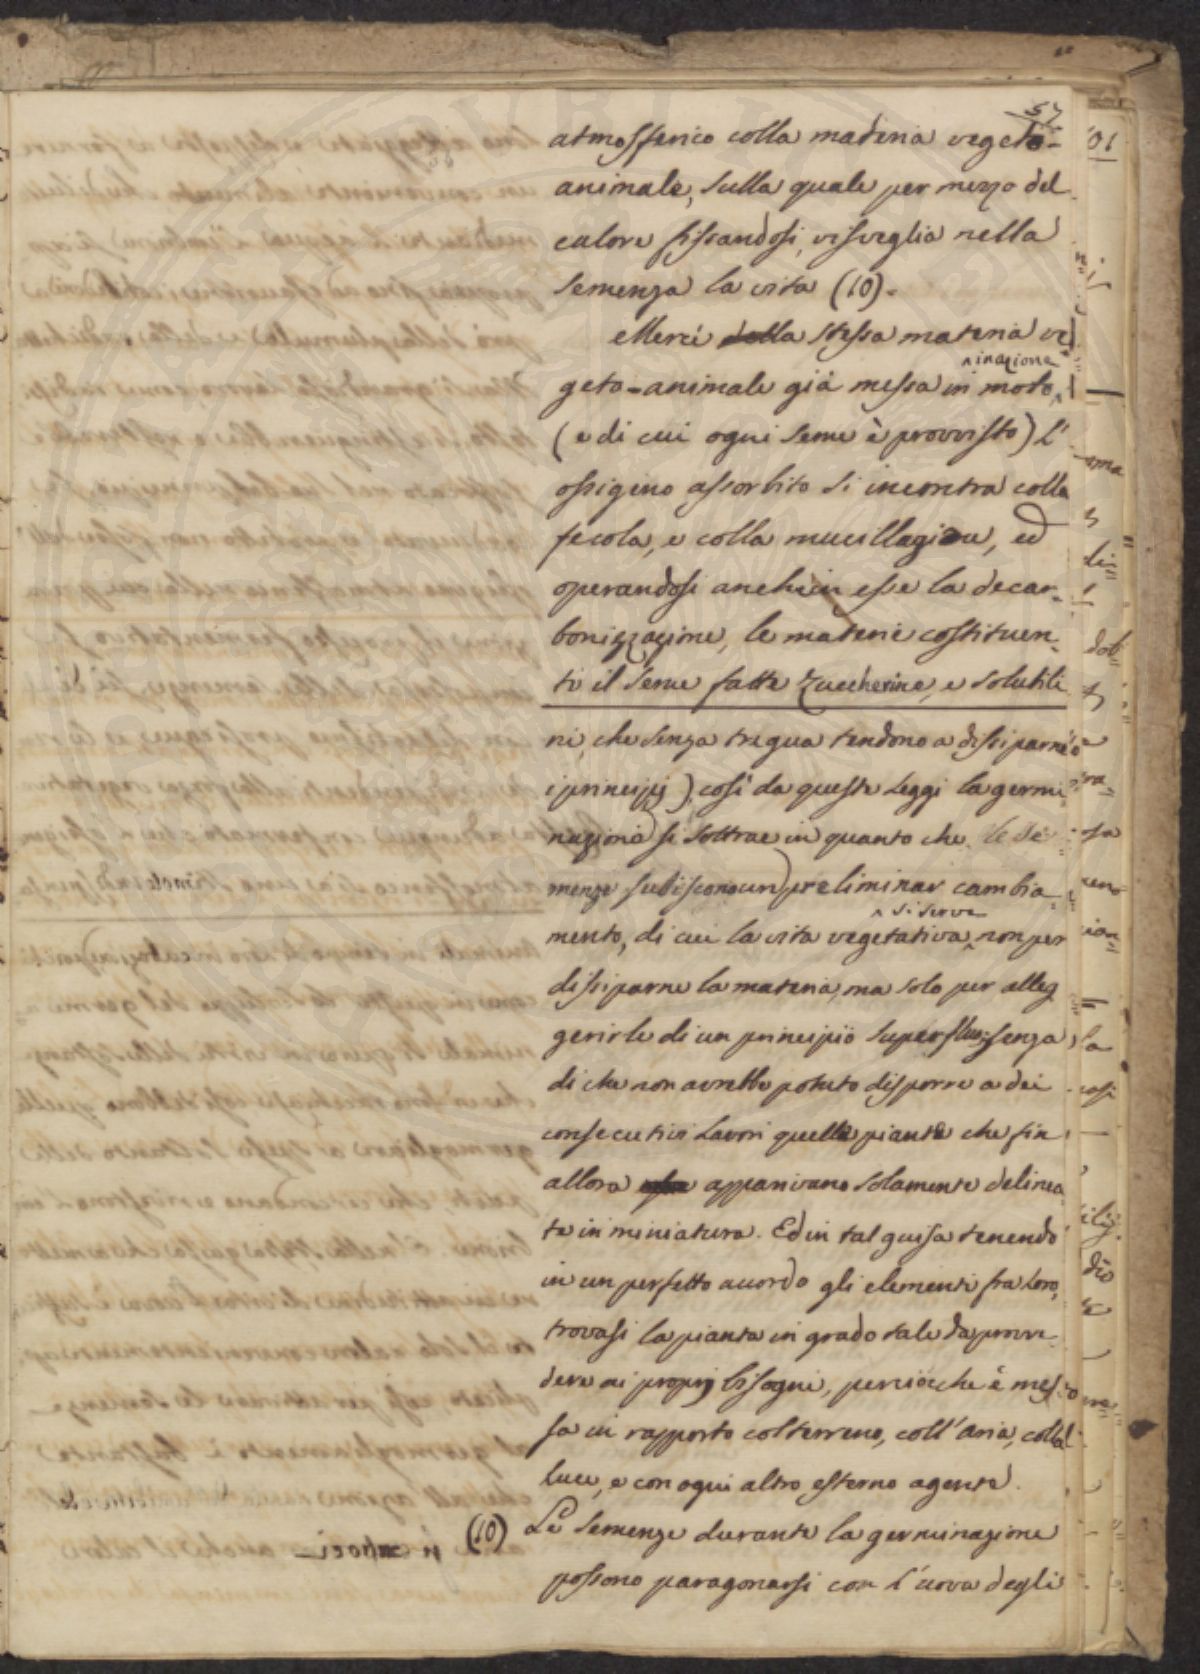 57
atmosferico colla materia vegeto-
animale, sulla quale per mezzo del
calore fissandosi, risveglia nella
semenza la vita (10).
Mercè della stessa materia ve
geto-animale già messa in moto,
inazione
(e di cui ogni seme è provvisto) l'
ossigeno assorbito si incontra colla
fecola, e colla mucillagine, ed
operandosi anche in esse la decar-
bonizzazione, le materie costituen-
ti il seme fatte zuccherine, e solubili
ni, che senza tregua tendono a dissiparne
i principj) così da queste leggi la germi
nazione si sottrae in quanto che le se
menze subiscono un preliminar cambia-
mento, di cui la vita vegetativa si serve non per
dissiparne la materia, ma solo per alleg
gerirle di un principio superfluo; senza
di che non avrebbe potuto disporre a dei
consecutivi lavori quelle piante che fin
allora apparivano solamente delinea
te in miniatura. Ed in tal guisa tenendo
in un perfetto accordo gli elementi fra loro,
trovasi la pianta in grado tale da provve
dere ai proprj bisogni, perciocchè è mes
sa in rapporto col terreno, coll'aria, colla
luce, e con ogni altro esterno agente.
(10) Le semenze durante la germinazione
possono paragonarsi con l'uova degli